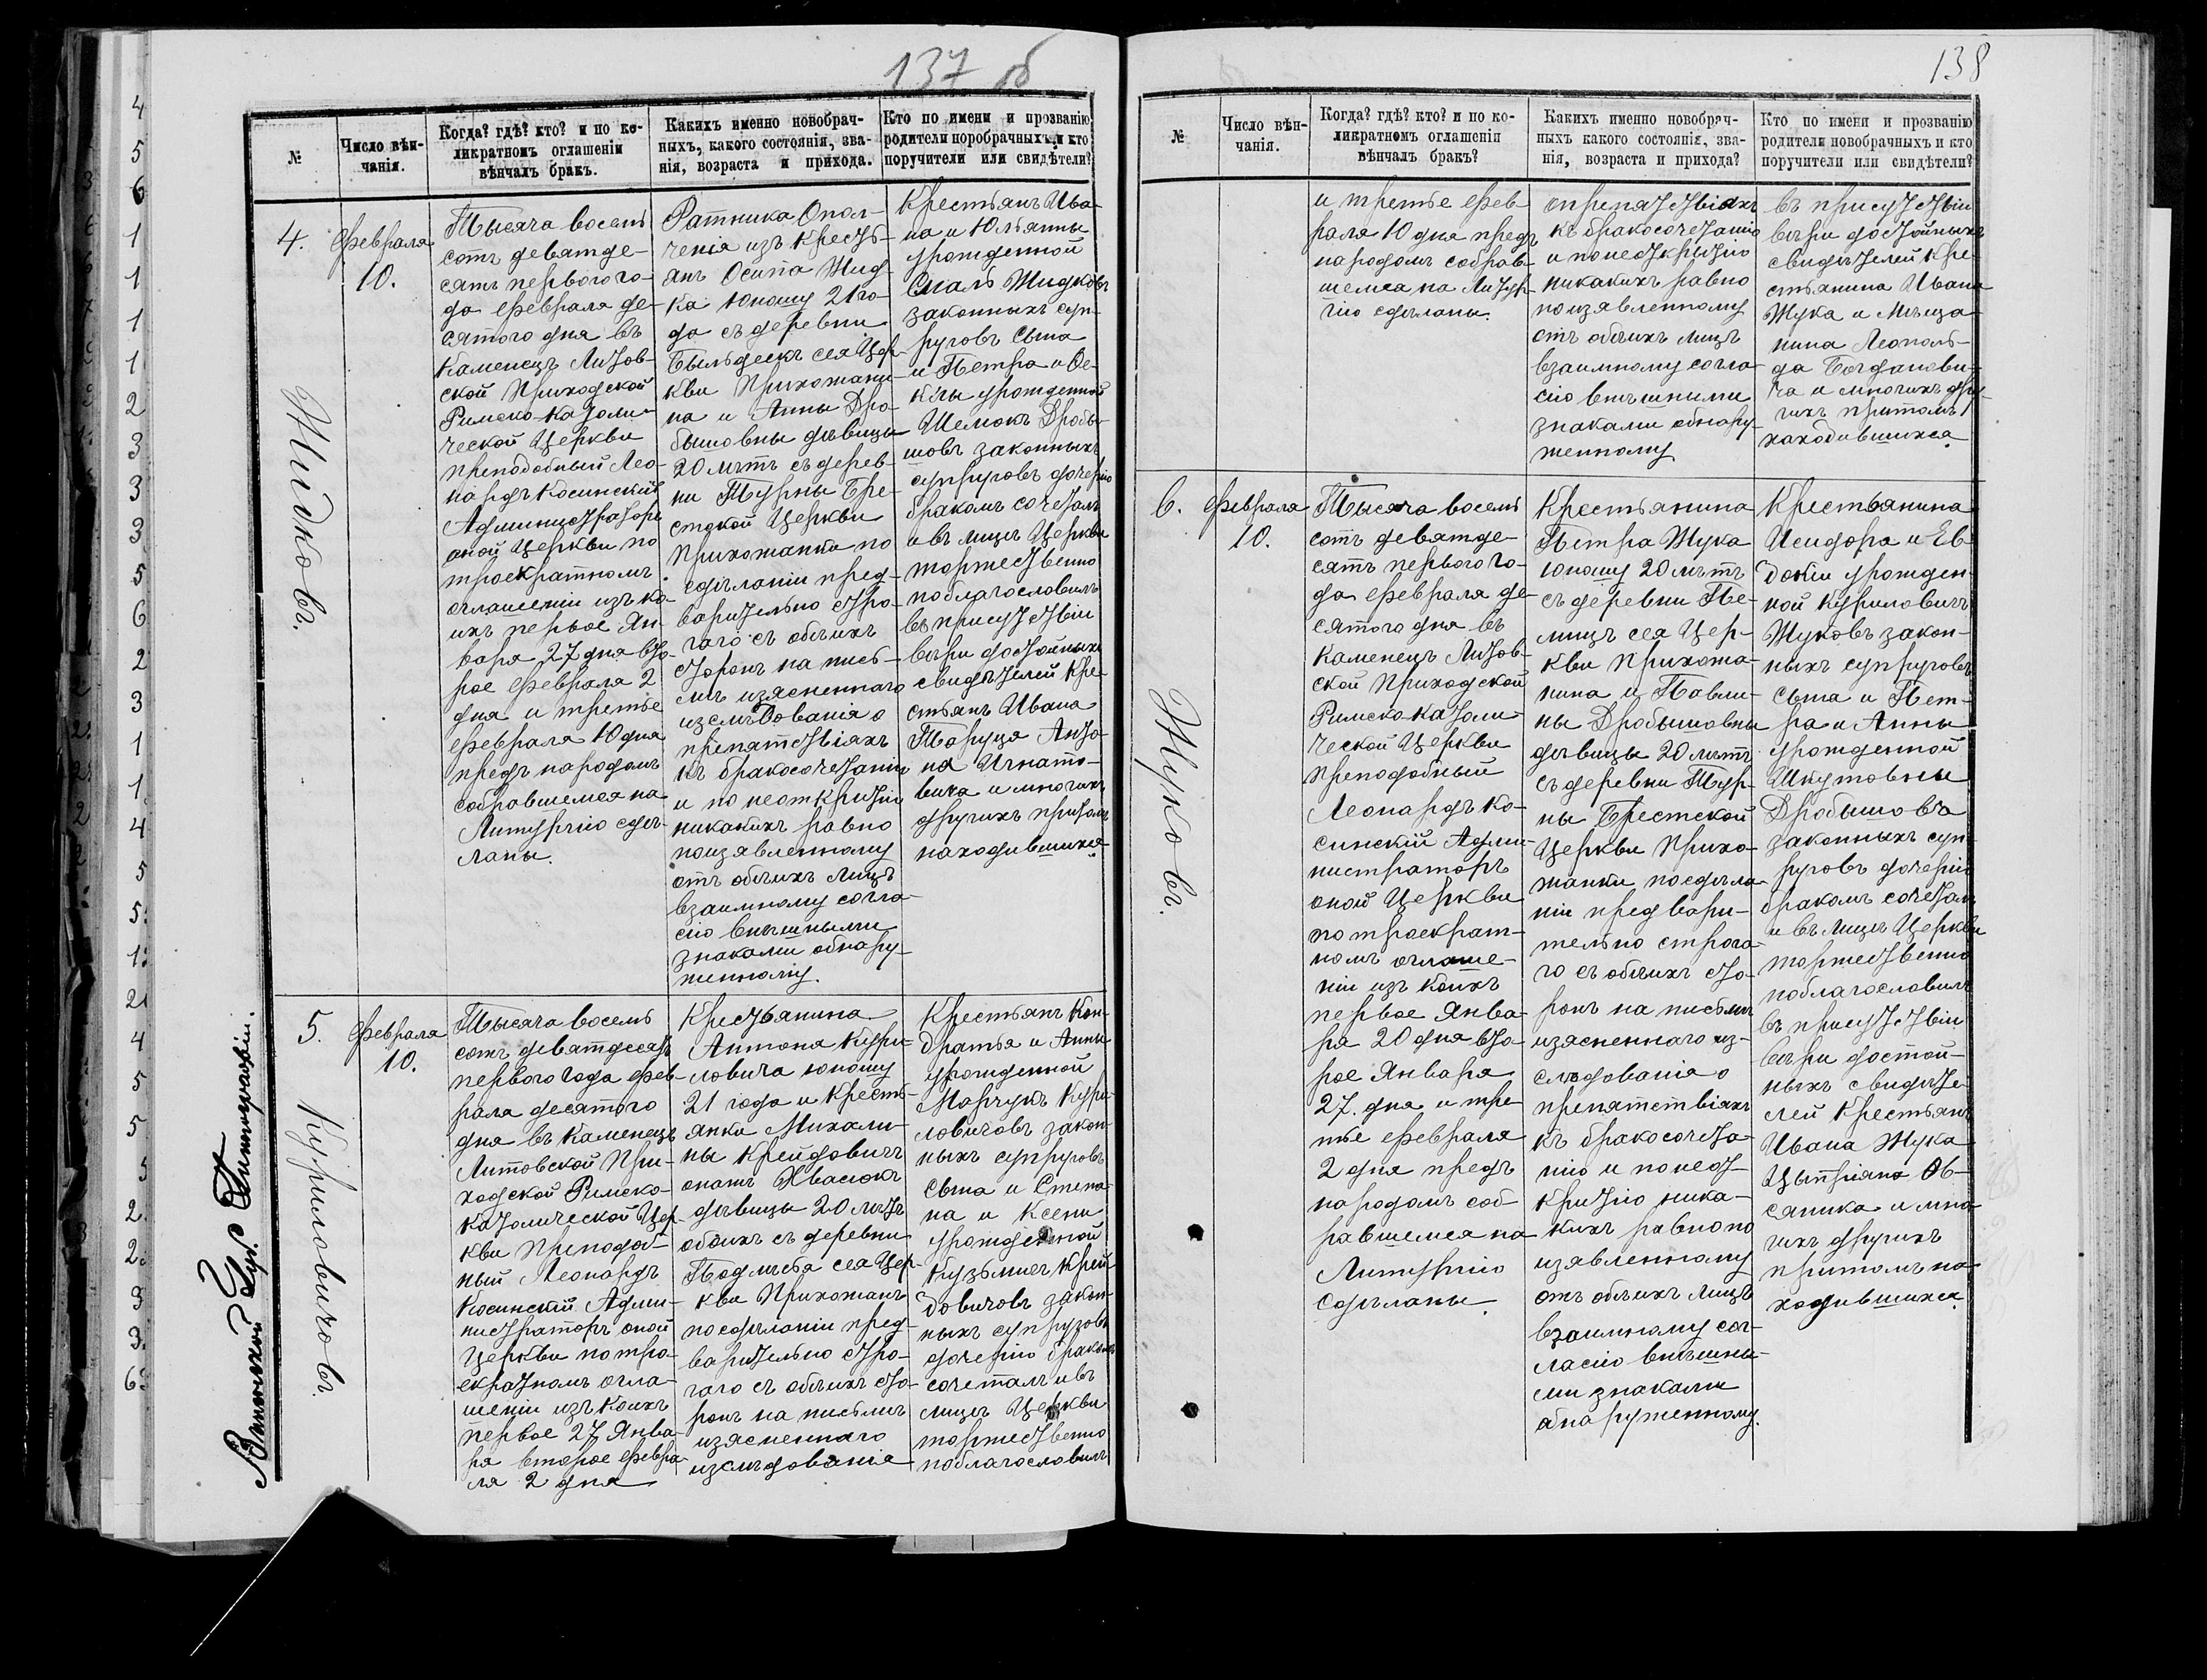 137 об
№
Число вѣн-
чанія.
Когда? гдѣ? кто? и по ко-
ликратномъ оглашеніи
вѣнчалъ бракъ.
Какихъ именно новобрач-
ныхъ, какого состоянія, зва-
нія, возраста и прихода.
Кто по имени и прозванію
родители норобрачныхъ, и кто
поручители или свидѣтели?
4.
Февраля
10.
Жидковъ.
Тысяча восемь
сотъ девятде-
сятъ первого го-
да февраля де-
сятого дня въ
Каменецъ Литов-
ской Приходской
Римско-Католи-
ческой Церкви
преподобный Лео-
нардъ Косинскій
Администраторъ
оной Церкви по
троекратномъ
оглашеніи изъ ко-
ихъ первое Ян-
варя 27 дня вто-
рое февраля 2
дня и третье
февраля 10 дня
предъ народомъ
собравшемся на
Литургію сдѣ-
ланы.
Ратника Опол-
ченія изъ Кресть-
янъ Осипа Жид-
ка юношу 21 го-
да съ деревни
сея Цер-
кви Прихожани-
на и Анны Дро-
бышовны дѣвицы
20 лѣтъ съ дерев-
ни Турны Бре-
стской Церкви
Прихожанки по
сдѣланіи пред-
варительно стро-
гаго съ обѣихъ
сторонъ на пись-
мѣ изясненнаго
изслѣдованія о
препятствіяхъ
къ бракосочетанію
и по неоткритію
никакихъ равно
поизявленному
отъ обѣихъ лицъ
взаимному согла-
сію внѣшными
знаками обнару-
женному.
Крестьянъ Ива-
на и Юльянны
урожденной
Жидковъ
законныхъ суп-
руговъ сына
и Петра и Фе-
клы урожденной
Шемокъ Дробы-
шовъ законныхъ
супруговъ дочерію
бракомъ сочеталъ
и въ лицѣ Церкви
торжественно
поблагословилъ
въ присутствіи
вѣри достойныхъ
свидѣтелей Кре-
стьянъ Ивана
Таруця Анто-
на Игнато-
вика и многихъ
другихъ притомъ
находившихся
5.
Февраля
10.
Куриловичовъ.
Тысяча восемь
сотъ девятдесятъ
первого года фев-
раля десятого
дня въ Каменецъ
Литовской При-
ходской Римско-
Католической Цер-
кви Преподоб-
ный Леонардъ
Косинскій Адми-
нистраторъ оной
Церкви по тро-
екратномъ огла-
шеніи изъ коихъ
первое 27 Янва-
ря второе февра-
ля 2 дня
Крестьянина
Антона Кури-
ловича юношу
21 года и Кресть-
янки Михали-
ны Крейдовичъ
Квасюкъ
дѣвицы 20 лѣтъ
обоихъ съ деревни
Подлѣсья сея Цер-
кви Прихожанъ
по сдѣланіи пред-
варительно стро-
гаго съ обѣихъ сто-
ронъ на письмѣ
изясненнаго
изслѣдованія
Крестьянъ Кон-
дратья и Анны
урожденной
Марчукъ Кури-
ловичовъ закон-
ныхъ супруговъ
сына и Степа-
на и Ксени
урожденной
Кузьмичъ Крей-
довичовъ закон-
ныхъ супруговъ
дочерію бракомъ
сочеталъ и въ
лицѣ Церкви
торжественно
поблагословилъ
138
№
Число вѣн-
чанія.
Когда? гдѣ? кто? и по ко-
ликратномъ оглашенія
вѣнчалъ бракъ?
Какихъ именно новобрач-
ныхъ какого состоянія, зва-
нія, возраста и прихода?
Кто по имени и прозванію
родители новобрачныхъ и кто
поручители или свидѣтели?
и третье фев-
раля 10 дня предъ
народомъ собрав-
шемся на Литур-
гію сдѣланы.
опрепятствіяхъ
къ бракосочетанію
и по неоткритію
никакихъ равно
поизявленному
отъ обѣихъ лицъ
взаимному согла-
сію внѣшними
знаками обнару-
женному
въ присутствіи
вѣри достойныхъ
свидѣтелей Кре-
стьянина Ивана
Жука и Мѣща-
нина Леополь-
да Богданови-
ча и многихъ дру-
гихъ притомъ
находившихся
6.
Февраля
10.
Жуковъ.
Тысяча восемь
сотъ девятде-
сятъ первого го-
да февраля де-
сятого дня въ
Каменецъ Литов-
ской Приходской
Римско Католи-
ческой Церкви
Преподобный
Леонардъ Ко-
синскій Адми-
нистраторъ
оной Церкви
по троекрат-
номъ оглаше-
ніи изъ коихъ
первое Янва-
ря 20 дня вто-
рое Января
27. дня и тре-
тье февраля
2 дня предъ
народомъ соб-
равшемся на
Литургію
сдѣланы.
Крестьянина
Петра Жука
юношу 20 лѣтъ
съ деревни Пе-
лищъ сея Цер-
кви Прихожа-
нина и Павли-
ны Дробышовны
дѣвицы 20 лѣтъ
съ деревни Тур-
ны Брестской
Церкви Прихо-
жанки по сдѣла-
ніи предвари-
тельно строга-
го съ обѣихъ сто-
ронъ на письмѣ
изясненнаго из-
слѣдованія о
препятствіяхъ
къ бракосочета-
нію и по неот-
критію ника-
кихъ равно по
изявленному
отъ обѣихъ лицъ
взаимному сог-
ласію внѣшны-
ми знаками
обнаруженному.
Крестьянина
Исидора и Ев-
докіи урожден-
ной Куриловичъ
Жуковъ закон-
ныхъ супруговъ
сына и Пет-
ра и Анны
урожденной
Шкутовны
Дробышовъ
законныхъ суп-
руговъ дочерію
бракомъ сочеталъ
и въ лицѣ Церкви
торжественно
поблагословилъ
въ присутствіи
вѣри достой-
ныхъ свидѣте-
лей Крестьянъ
Ивана Жука
Цыпріяна Ов-
сяника и мно-
гихъ другихъ
притомъ на-
ходившихся.